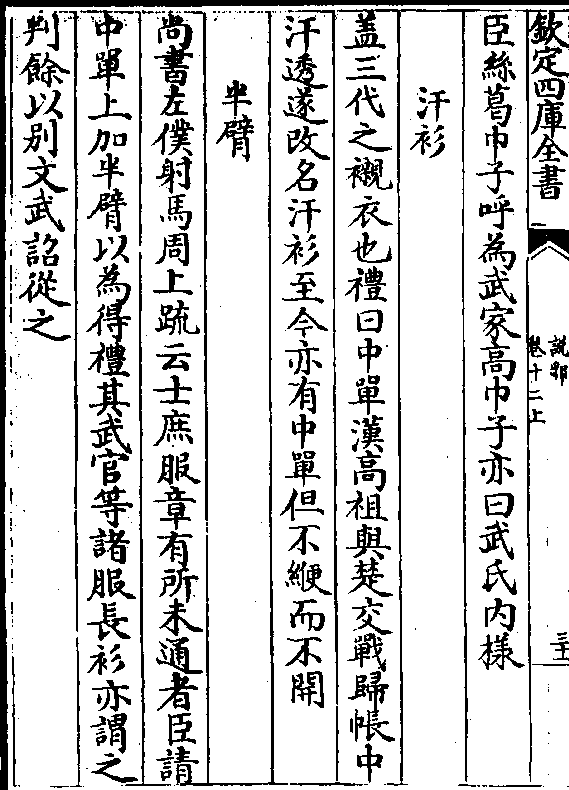 欽定四庫全書
說郛
卷十二上
三十
臣絲葛巾子呼為武家高巾子亦曰武氏内様
汗衫
盖三代之襯衣也禮曰中單漢高祖與楚交戰歸帳中
汗透遂改名汗衫至今亦有中單但不緶而不開
半臂
尚書左僕射馬周上疏云士庶服章有所未通者臣請
中單上加半臂以為得禮其武官等諸服長衫亦謂之
判餘以别文武詔從之